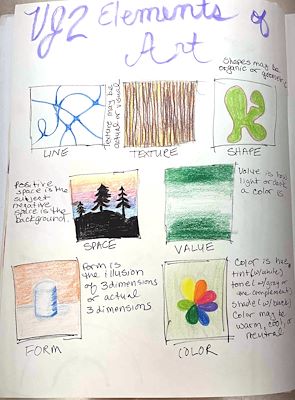 VJ2 Elements of
Art
Shapes may be
organic or geometric
Texture may be
actual or visual
LINE
TEXTURE
SHAPE
Positive
space is the
subject
negative
space is the
background.
Value is how
light or dark
a color is
SPACE
VALUE
Form is
the illusion
of 3 dimensions
or actual
3 dimensions
Color is hue,
tint (w/white)
tone (w/gray or
the complement)
shade (w/black)
Color may be
warm, cool, or
neutral
FORM
COLOR